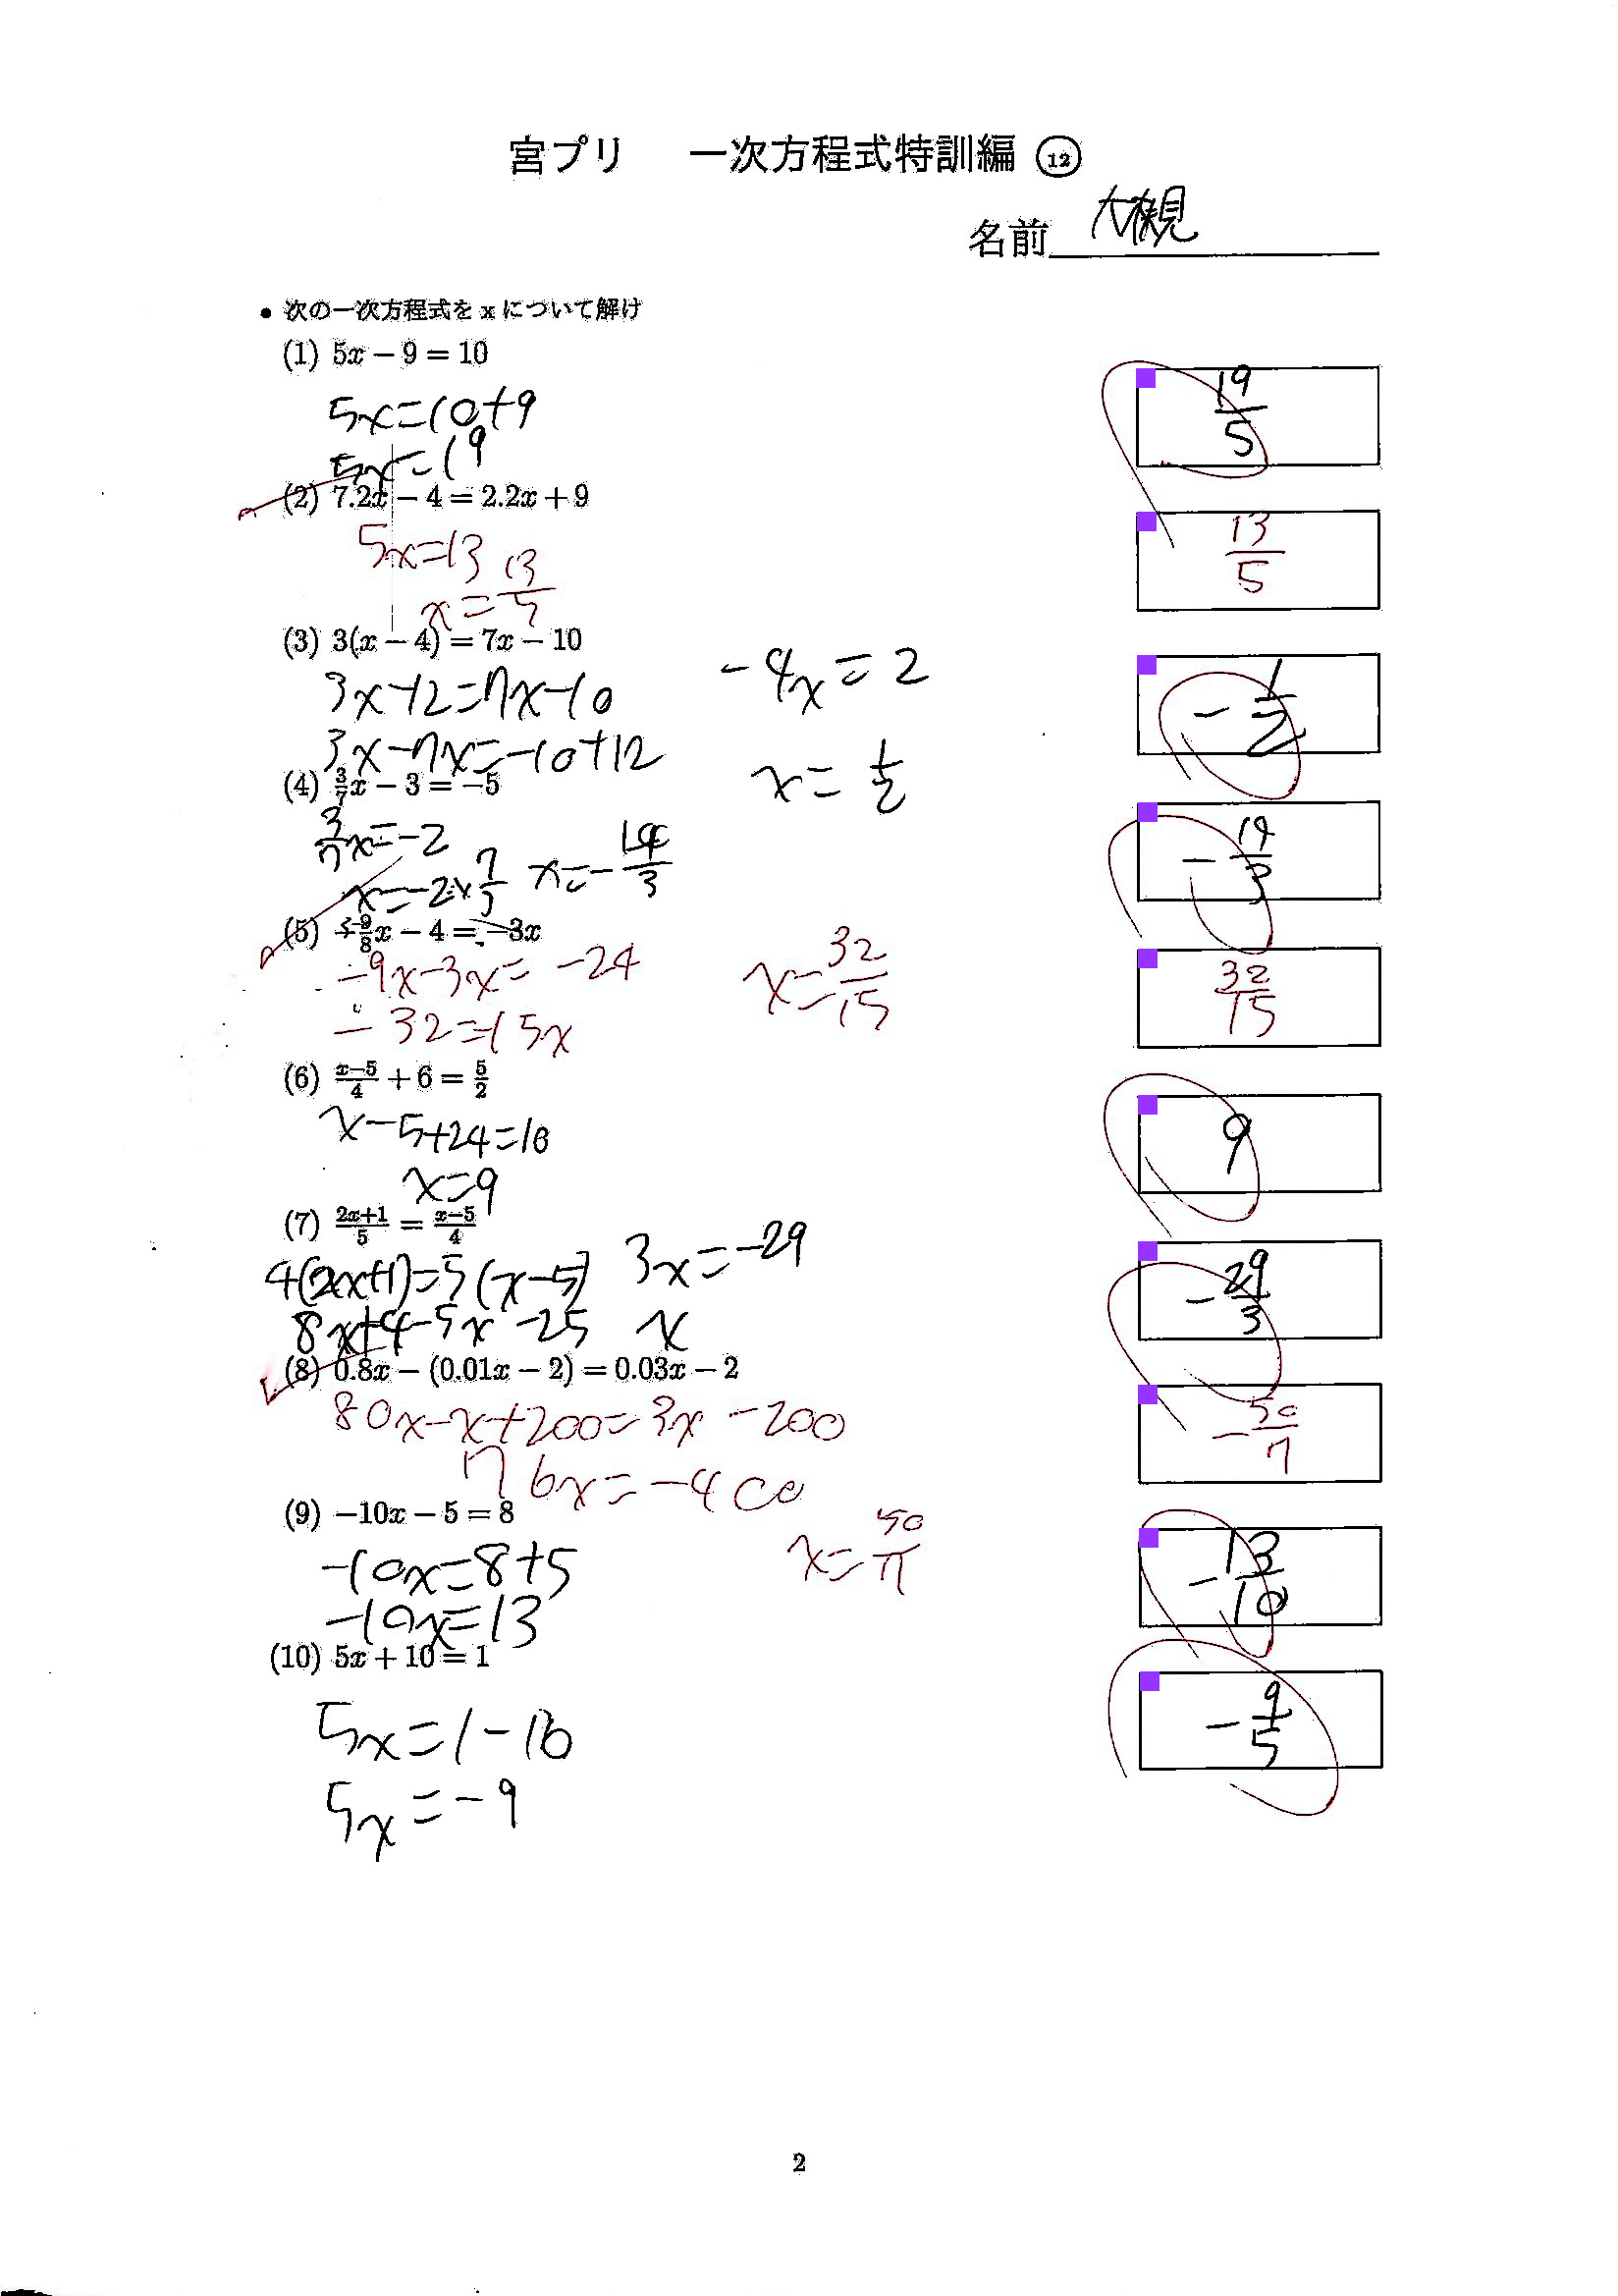 宮プリ 一次方程式特訓編 ⑫
名前 大槻
• 次の一次方程式を x について解け
(1) 5x − 9 = 10
5x=10+9
5x=19
19/5
(2) 7.2x − 4 = 2.2x + 9
5x=13
x=13/5
13/5
(3) 3(x − 4) = 7x − 10
3x-12=7x-10
3x-7x=-10+12
-4x=2
x=1/2
-1/2
(4) 3/7x − 3 = −5
3/7x=-2
x=-2×7/3
x=-14/3
-14/3
(5) -9/8x − 4 = −3x
-9x-3x=-24
-32=15x
x=32/15
32/15
(6) x−5/4 + 6 = 5/2
x-5+24=10
x=9
9
(7) 2x+1/5 = x−5/4
4(2x+1)=5(x-5)
8x+4-5x-25
3x=-29
x
-29/3
(8) 0.8x − (0.01x − 2) = 0.03x − 2
80x-x+200=3x-200
76x=-400
x=50/7
-50/7
(9) −10x − 5 = 8
-10x=8+5
-10x=13
-13/10
(10) 5x + 10 = 1
5x=1-10
5x=-9
-9/5
2